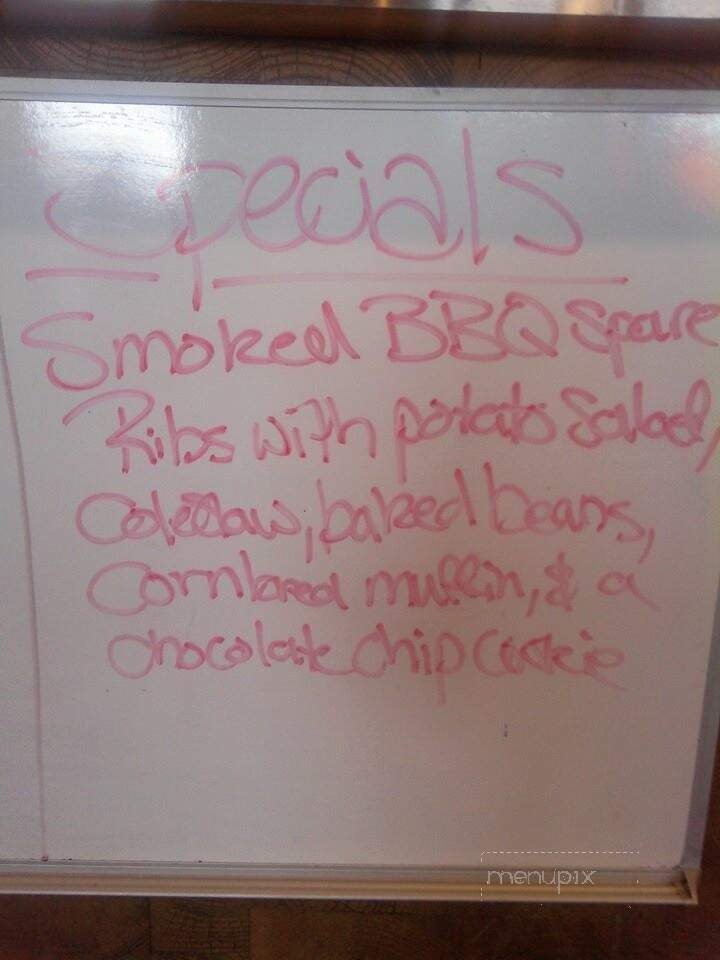 Specials
Smoked BBQ Spare
Ribs with potato Salad,
Coleslaw, baked beans,
Cornbread muffin, & a
chocolate chip cookie
menupix